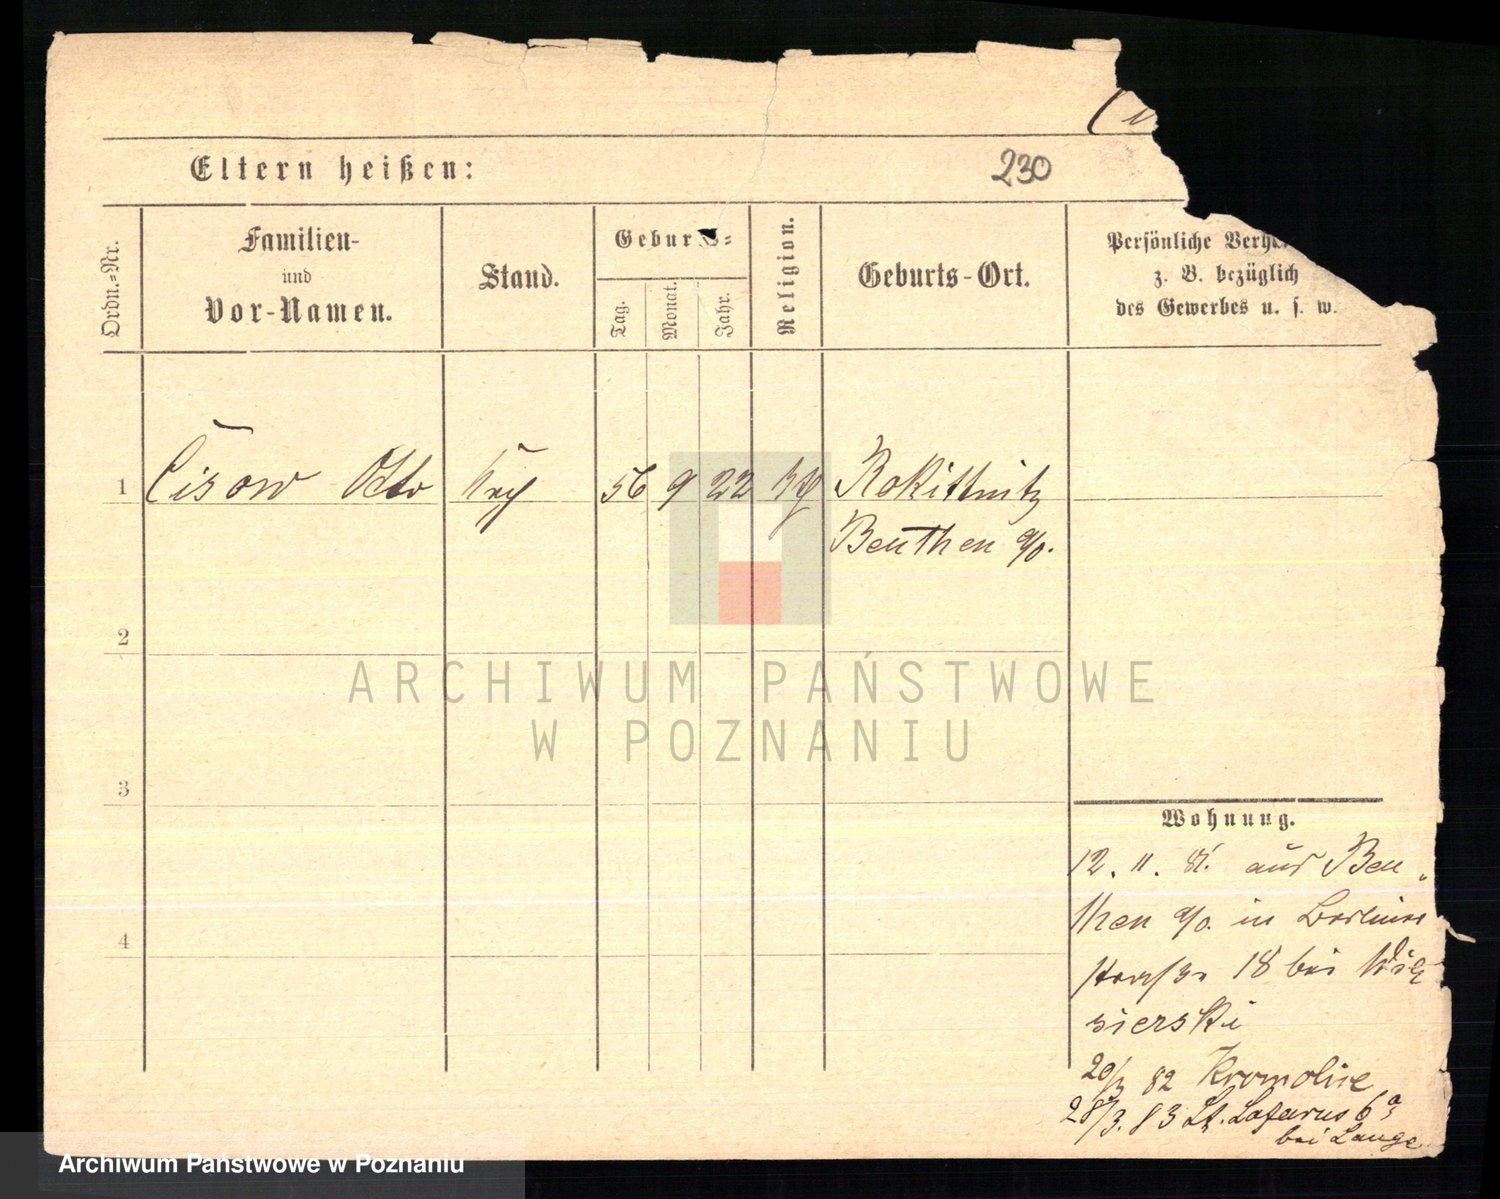 230
Eltern heißen:
Ordn.-Nr.
Familien-
und
Vor-Namen.
Stand.
Geburts-
Tag.
Monat.
Jahr.
Religion.
Geburts-Ort.
Persönliche Verh
z. B. bezüglich
des Gewerbes u. s. w.
1 Cisow Otto 56 9 22 Rokittnitz
Beuthen o/o.
2
3
4
Wohnung.
12. 11. 81. aus Beu
then o/o. in Berliner
straße 18 bei
sierski
20/3 82 Kromolice
28/3. 83 St. Lazarus 6a
bei Lange
ARCHIWUM PAŃSTWOWE
W POZNANIU
Archiwum Państwowe w Poznaniu